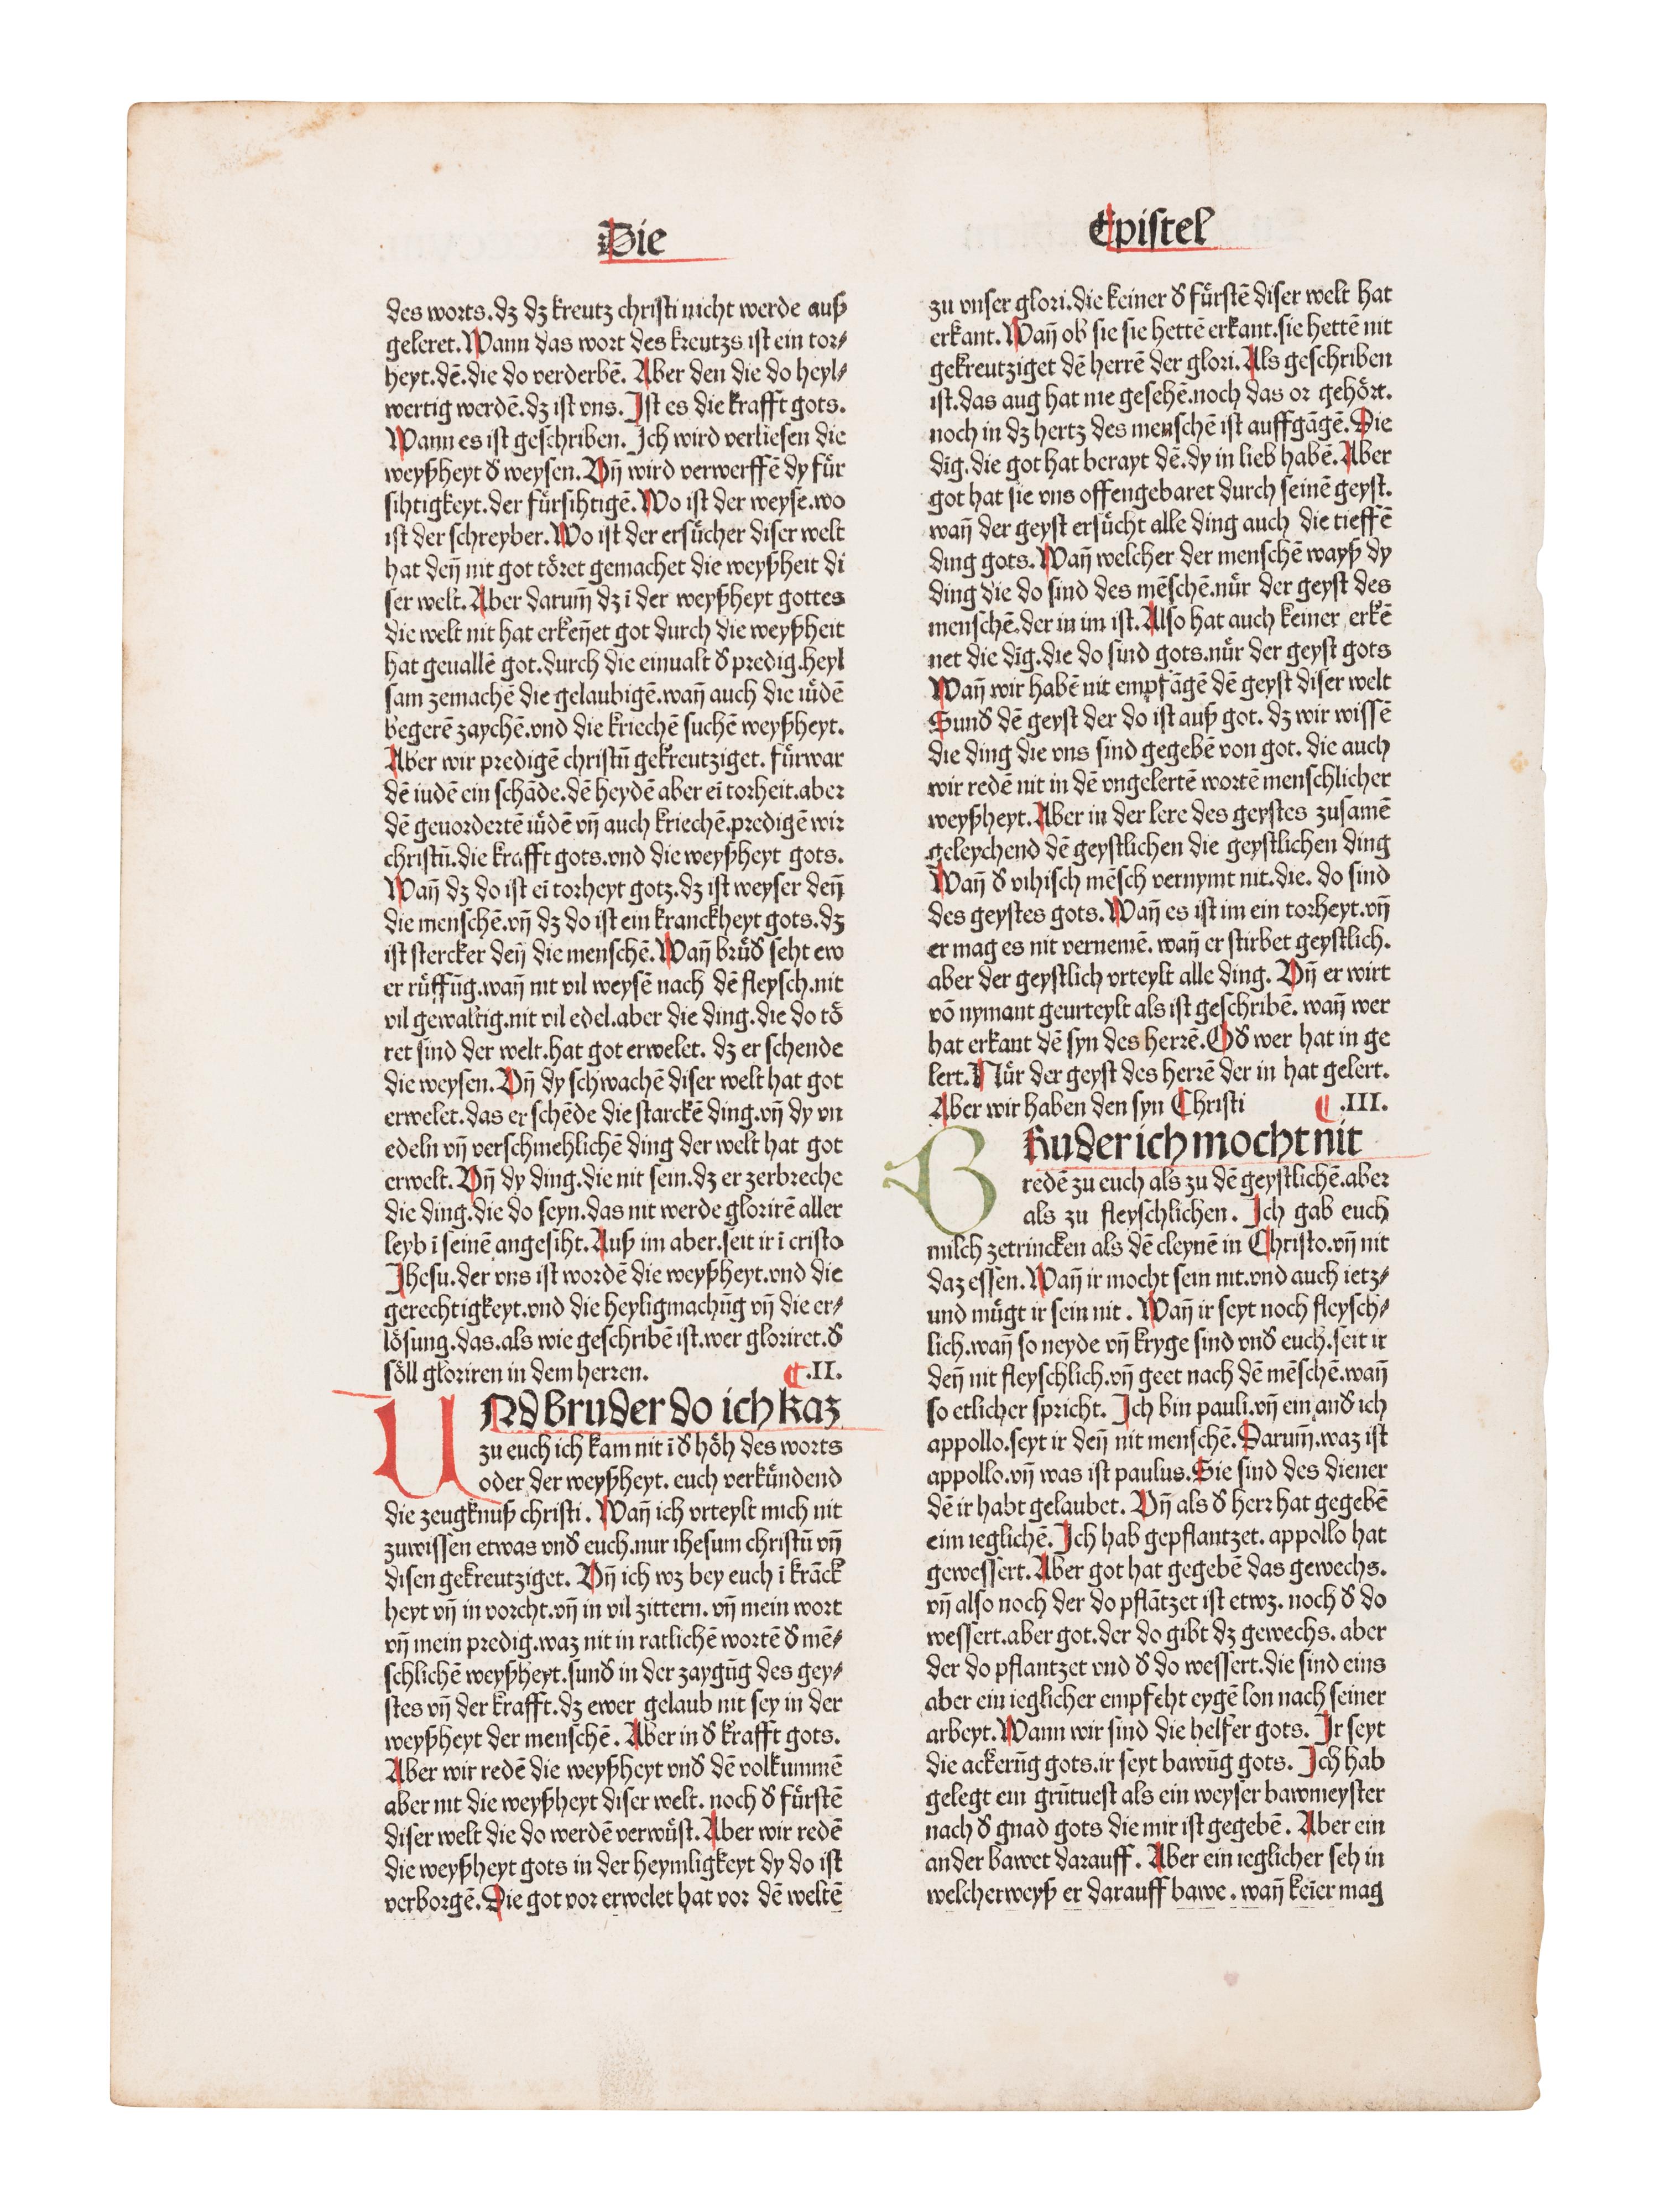 Die
des worts.dʒ dʒ kreutz christi nicht werde auß
geleret.Wann das wort des kreutzs ist ein tor⸗
heyt.dē.die do verderbē. Aber den die do heyl⸗
wertig werdē.dʒ ist vns. Ist es die krafft gots.
Wann es ist geschriben. Ich wird verliesen die
weyßheyt đ weysen. Vn̄ wird verwerffē dy fuͤr
sihtigkeyt.der fuͤrsihtigē. Wo ist der weyse.wo
ist der schreyber. Wo ist der ersuͤcher diser welt
hat den̄ nit got toͤret gemachet die weyßheit di
ser welt. Aber darum̄ dʒ ī der weyßheyt gottes
die welt nit hat erken̄et got durch die weyßheit
hat geuallē got.durch die einualt đ predig.heyl
sam zemachē die gelaubigē.wan̄ auch die iuͤdē
begerē zaychē.vnd die kriechē suchē weyßheyt.
Aber wir predigē christū gekreutziget. fuͤrwar
dē iudē ein schāde.dē heydē aber eī torheit.aber
dē geuordertē iuͤdē vn̄ auch kriechē.predigē wir
christū.die krafft gots.vnd die weyßheyt gots.
Wan̄ dʒ do ist eī torheyt gotz.dʒ ist weyser den̄
die menschē.vn̄ dʒ do ist ein kranckheyt gots.dʒ
ist stercker den̄ die menschē. Wan̄ bruͤđ seht ew
er ruͤffūg.wan̄ nit vil weysē nach dē fleysch.nit
vil gewaltig.nit vil edel.aber die ding.die do toͤ
ret sind der welt.hat got erwelet. dʒ er schende
die weysen. Vn̄ dy schwachē diser welt hat got
erwelet.das er schēde die starckē ding.vn̄ dy vn
edeln vn̄ verschmehlichē ding der welt hat got
erwelt. Vn̄ dy ding.die nit sein.dʒ er zerbreche
die ding.die do seyn.das nit werde glorirē aller
leyb ī seinē angesiht. Auß im aber.seit ir ī cristo
Ihesu.der vns ist wordē die weyßheyt.vnd die
gerechtigkeyt.vnd die heyligmachūg vn̄ die er⸗
loͤsung.das.als wie geschribē ist.wer gloriret.đ
soͤll gloriren in dem herren. ¶.II.
UNd bruder do ich kaʒ
zu euch ich kam nit ī đ hoͤh des worts
oder der weyßheyt. euch verkuͤndend
die zeugknuß christi. Wan̄ ich vrteylt mich nit
zuwissen etwas vnđ euch.nur ihesum christū vn̄
disen gekreutziget. Vn̄ ich wʒ bey euch ī krāck
heyt vn̄ in vorcht.vn̄ in vil zittern. vn̄ mein wort
vn̄ mein predig.waz nit in ratlichē wortē đ mē⸗
schlichē weyßheyt.sunđ in der zaygūg des gey⸗
stes vn̄ der krafft.dʒ ewer gelaub nit sey in der
weyßheyt der menschē. Aber in đ krafft gots.
Aber wir redē die weyßheyt vnđ dē volkummē
aber nit die weyßheyt diser welt. noch đ fuͤrstē
diser welt die do werdē verwuͤst. Aber wir redē
die weyßheyt gots in der heymligkeyt dy do ist
verborgē. Die got vor erwelet hat vor dē weltē
Epistel
zu vnser glori.die keiner đ fuͤrstē diser welt hat
erkant. Wan̄ ob sie sie hettē erkant.sie hettē nit
gekreutziget dē herrē der glori. Als geschriben
ist.das aug hat nie gesehē.noch das or gehoͤrt.
noch in dʒ hertz des menschē ist auffgāgē. Die
dīg.die got hat berayt dē.dy in lieb habē. Aber
got hat sie vns offengebaret durch seinē geyst.
wan̄ der geyst ersuͤcht alle ding auch die tieffē
ding gots. Wan̄ welcher der menschē wayß dy
ding die do sind des mēschē.nuͤr der geyst des
menschē.der in im ist. Also hat auch keiner erkē
net die dīg.die do sind gots.nuͤr der geyst gots
Wan̄ wir habē nit empfāgē dē geyst diser welt
Sunđ dē geyst der do ist auß got. dʒ wir wissē
die ding die vns sind gegebē von got. die auch
wir redē nit in dē vngelertē wortē menschlicher
weyßheyt. Aber in der lere des geystes zusamē
geleychend dē geystlichen die geystlichen ding
Wan̄ đ vihisch mēsch vernymt nit.die. do sind
des geystes gots. Wan̄ es ist im ein torheyt.vn̄
er mag es nit vernemē. wan̄ er stirbet geystlich.
aber der geystlich vrteylt alle ding. Vn̄ er wirt
vō nymant geurteylt als ist geschribē. wan̄ wer
hat erkant dē syn des herrē. Ođ wer hat in ge
lert. Nuͤr der geyst des herrē der in hat gelert.
Aber wir haben den syn Christi ¶.III.
BRuder ich mocht nit
redē zu euch als zu dē geystlichē.aber
als zu fleyschlichen. Ich gab euch
milch zetrincken als dē cleynē in Christo.vn̄ nit
daz essen. Wan̄ ir mocht sein nit.vnd auch ietz⸗
und muͤgt ir sein nit. Wan̄ ir seyt noch fleysch⸗
lich.wan̄ so neyde vn̄ kryge sind vnđ euch.seit ir
den̄ nit fleyschlich.vn̄ geet nach dē mēschē.wan̄
so etlicher spricht. Ich bin pauli.vn̄ ein anđ ich
appollo.seyt ir den̄ nit menschē. Darum̄.waz ist
appollo.vn̄ was ist paulus. Sie sind des diener
dē ir habt gelaubet. Vn̄ als đ herr hat gegebē
eim ieglichē. Ich hab gepflantzet. appollo hat
gewessert. Aber got hat gegebē das gewechs.
vn̄ also noch der do pflātzet ist etwʒ. noch đ do
wessert.aber got.der do gibt dʒ gewechs. aber
der do pflantzet vnd đ do wessert.die sind eins
aber ein ieglicher empfeht eygē lon nach seiner
arbeyt. Wann wir sind die helfer gots. Ir seyt
die ackerūg gots.ir seyt bawūg gots. Ich hab
gelegt ein grūtuest als ein weyser bawmeyster
nach đ gnad gots die mir ist gegebē. Aber ein
ander bawet darauff. Aber ein ieglicher seh in
welcherweyß er darauff bawe. wan̄ keīer mag